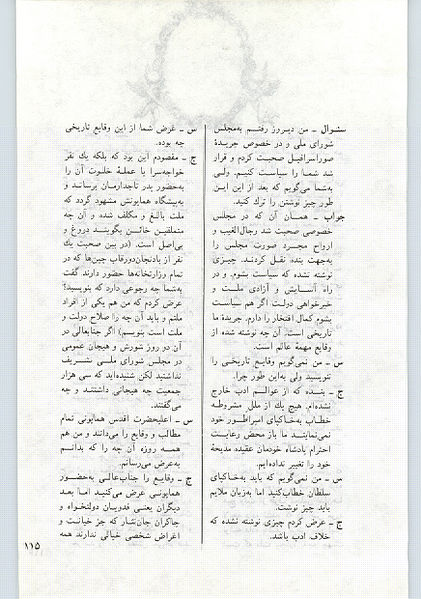 سئوال ـ من دیروز رفتم به‌مجلس
شورای ملی و در خصوص جریدهٔ
صوراسرافیل صحبت کردم و قرار
شد شما را سیاست کنیم. ولی
به‌شما می‌گویم که بعد از این این
طور چیز نوشتن را ترك کنید.
جواب ـ همان آن که در مجلس
خصوصی صحبت شد رجال‌الغیب و
ارواح مجرد صورت مجلس را
به‌جهت بنده نقل کردند. چیزی
نوشته نشده که سیاست بشوم. و در
راه آسایش و آزادی ملت و
خیرخواهی دولت اگر هم سیاست
بشوم کمال افتخار را دارم. جریدهٔ ما
تاریخی است. آن چه نوشته شده از
وقایع مهمهٔ عالم است.
س ـ من نمی‌گویم وقایع تاریخی را
ننویسید ولی به‌این طور چرا.
ج ـ بنده که از عوالم ادب خارج
نشده‌ام. هیچ یك از ملل مشروطه
خطاب به‌خاکپای امپراطور خود
نمی‌نمایند ما باز محض رعایت
احترام پادشاه خودمان عقیدهٔ مدیحهٔ
خود را تغییر نداده‌ایم.
س ـ من نمی‌گویم که باید به‌خاکپای
سلطان خطاب‌کنید اما به‌زبان ملایم
باید چیز نوشت.
ج ـ عرض کردم چیزی نوشته نشده که
خلاف ادب باشد.
س ـ غرض شما از این وقایع تاریخی
چه بوده.
ج ـ مقصودم این بود که بلکه یك نفر
خواجه‌سرا یا عملهٔ خلوت آن را
به‌حضور پدر تاجدارمان برساند و
به‌پیشگاه همایونش مشهود گردد که
ملت بالغ و مکلف شده و آن چه
متملقین خائن بگویند دروغ و
بی‌اصل است. (در بین صحبت یك
نفر از بادنجان‌دورقاب چین‌ها که در
تمام وزارتخانه‌ها حضور دارند گفت
به‌شما چه رجوعی دارد که بنویسید؟
عرض کردم که من هم یکی از افراد
ملتم و باید آن چه را صلاح دولت و
ملت است بنویسم) اگر جنابعالی در
آن دو روز شورش و هیجان عمومی
در مجلس شورای ملی تشریف
نداشتید لکن شنیده‌اید که سی هزار
جمعیت چه هیجانی داشتند و چه
می‌گفتند.
س ـ اعلیحضرت اقدس همایونی تمام
مطالب و وقایع را می‌دانند و من هم
همه روزه آن چه را که بدانم
به‌عرض می‌رسانم.
ج ـ وقایع را جناب‌عالی به‌حضور
همایونی عرض می‌کنید اما بعد
دیگران یعنی فدویان دولتخواه و
چاکران جان‌نثار که جز خیانت و
اغراض شخصی خیالی ندارند همه
۱۱۵